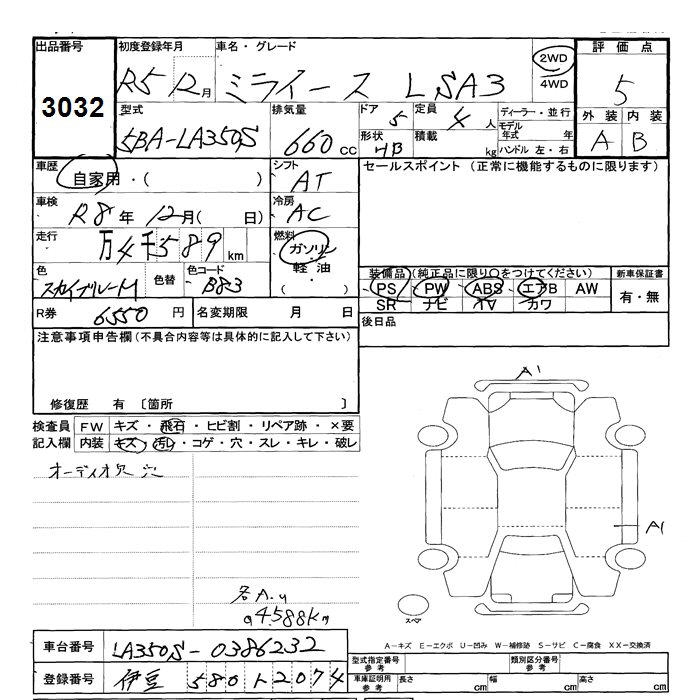 出品番号 初度登録年月 車名・グレード 2WD 評価点
3032 R5 12月 ミライース LSA3 4WD 5
型式 排気量 ドア 定員 ディーラー・並行 外装 内装
5BA-LA350S 660cc 5 4人 モデル年式 年 A B
形状 積載 ハンドル 左・右
HB kg
車歴 シフト セールスポイント (正常に機能するものに限ります)
自家用・( ) AT
車検 冷房
R8年 12月( 日) AC
走行 燃料
万4千589km ガソリン
色 色替 色コード 軽油 装備品(純正品に限り○をつけてください) 新車保証書
スカイブルーM B83 ・( ) PS PW ABS エアB AW 有・無
SR ナビ TV カワ
R券 6550円 名変期限 月 日 後日品
注意事項申告欄(不具合内容等は具体的に記入して下さい)
修復歴 有 〔箇所 〕
検査員 FW キズ・飛石・ヒビ割・リペア跡・×要
記入欄 内装 キズ・汚レ・コゲ・穴・スレ・キレ・破レ
オーディオ欠 穴
A1
A1
スペア
4588km
A-キズ E-エクボ U-凹み W-補修跡 S-サビ C-腐食 XX-交換済
車台番号 LA350S-0386232
登録番号 伊豆 580 い 2074
型式指定番号 参考 類別区分番号 参考
車庫証明用 参考 長さ cm 幅 cm 高さ cm